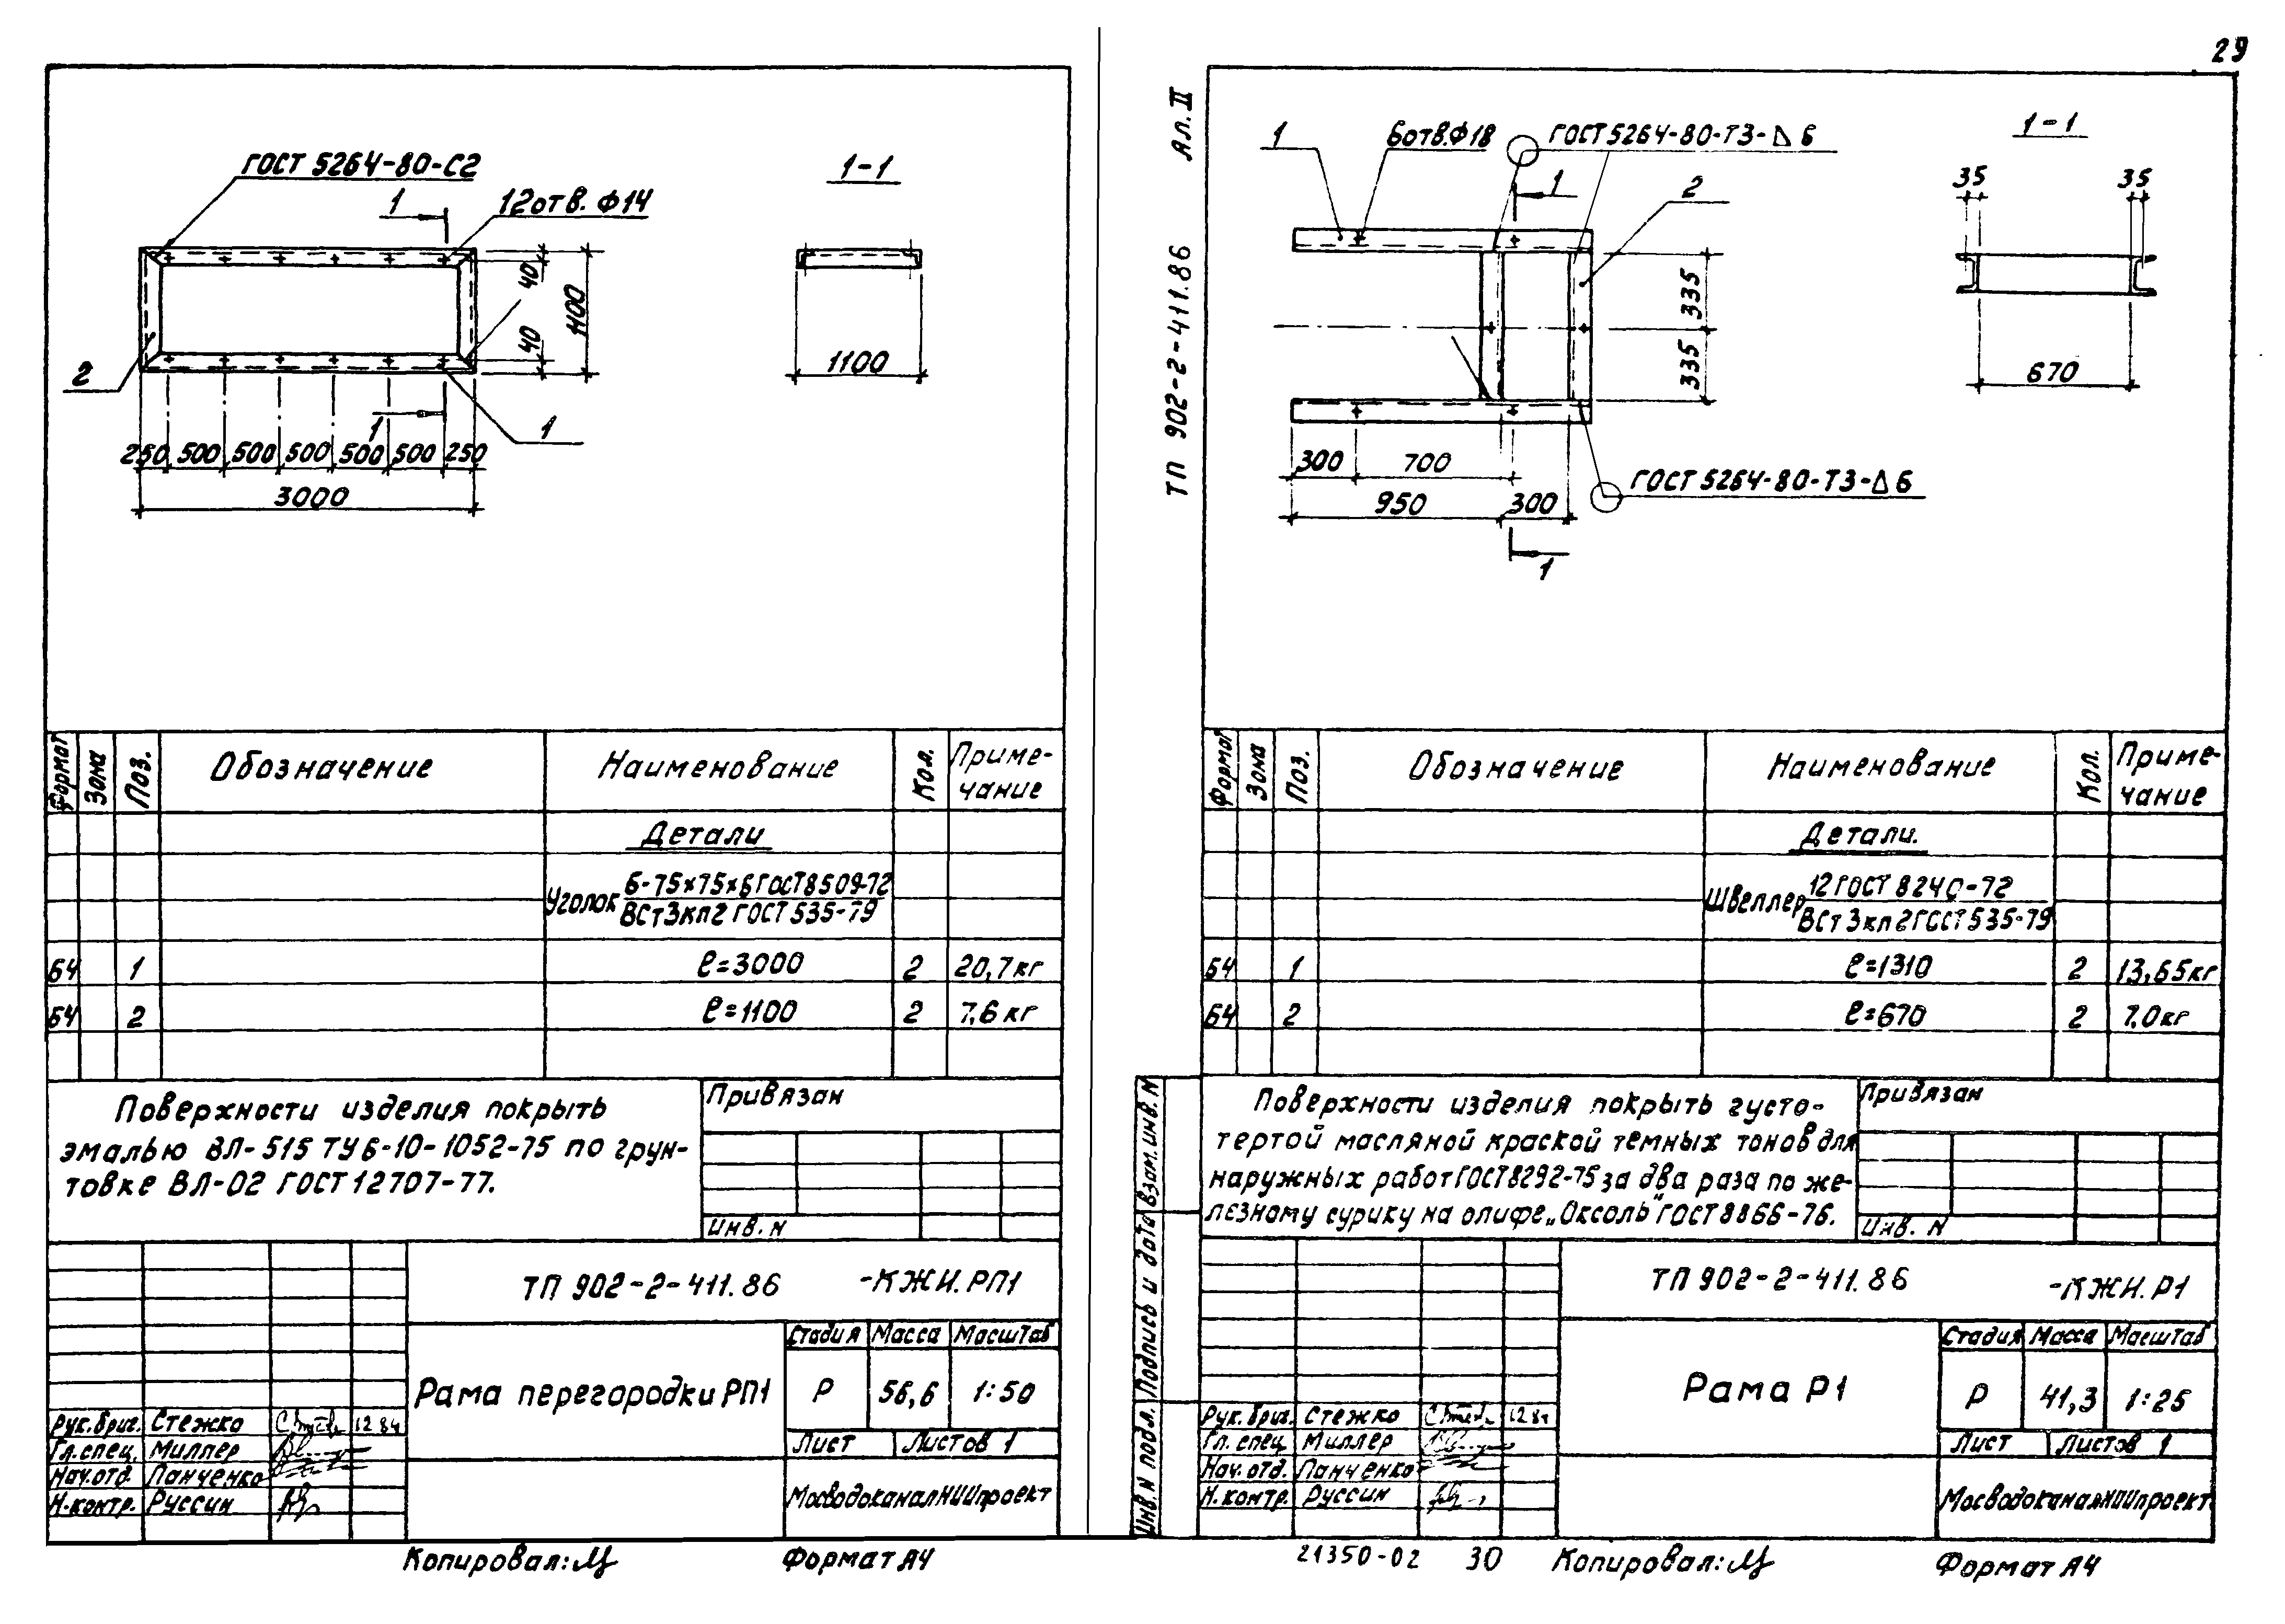 29
ГОСТ 5264-80-С2
1
12отв. Ф14
1-1
40
40
1100
2
1
1
250 500 500 500 500 500 250
3000
1100
Формат
Зона
Поз.
Обозначение
Наименование
Кол.
Приме-
чание
Детали
Уголок Б-75х75х6 ГОСТ 8509-72
ВСт3кп2 ГОСТ 535-79
БЧ 1 ℓ=3000 2 20,7кг
БЧ 2 ℓ=1100 2 7,6 кг
Поверхности изделия покрыть
эмалью ВЛ-515 ТУ6-10-1052-75 по грун-
товке ВЛ-02 ГОСТ 12707-77.
Привязан
Инв. N
ТП 902-2-411.86 -КЖИ.РП1
Рама перегородки РП1
Стадия Масса Масштаб
Р 56,6 1:50
Лист Листов 1
МосводоканалНИИпроект
Рук.бриг. Стежко 12.84
Гл.спец. Миллер
Нач.отд. Панченко
Н.контр. Руссин
Копировал:
Формат А4
Ал. II
ТП 902-2-411.86
1
6отв.Ф18
ГОСТ 5264-80-Т3-△6
1
2
1-1
35
35
335
335
670
300 700
950 300
ГОСТ 5264-80-Т3-△6
1
Формат
Зона
Поз.
Обозначение
Наименование
Кол.
Приме-
чание
Детали.
Швеллер 12 ГОСТ 8240-72
ВСт3кп2 ГОСТ 535-79
БЧ 1 ℓ=1310 2 13,65кг
БЧ 2 ℓ=670 2 7,0кг
Поверхности изделия покрыть густо-
тертой масляной краской темных тонов для
наружных работ ГОСТ 8292-75 за два раза по же-
лезному сурику на олифе „Оксоль" ГОСТ 8866-76.
Привязан
Инв. N
Взам. инв. N
Подпись и дата
Инв. N подл.
ТП 902-2-411.86 -КЖИ.Р1
Рама Р1
Стадия Масса Масштаб
Р 41,3 1:25
Лист Листов 1
МосводоканалНИИпроект
Рук.бриг. Стежко 12.84
Гл. спец. Миллер
Нач. отд. Панченко
Н. контр. Руссин
21350-02 30 Копировал:
Формат А4